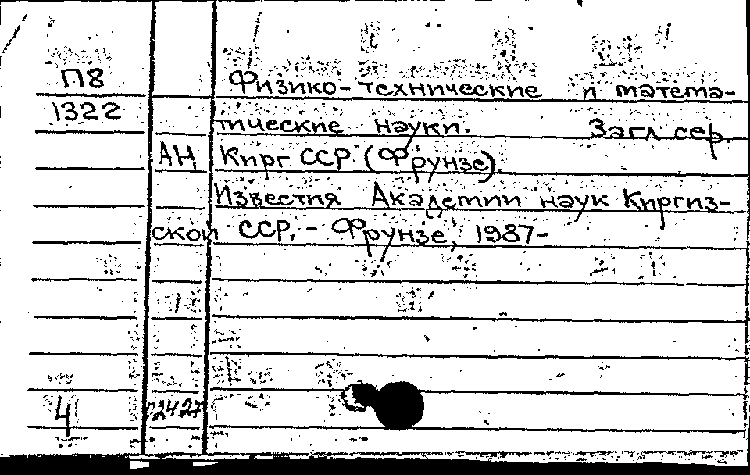 П8 Физико-технические и матема-
1322 тические науки. Загл. сер.
АН Кирг ССР. (Фрунзе).
Известия Академии наук Киргиз-
ской ССР. - Фрунзе, 1987-
4 22427